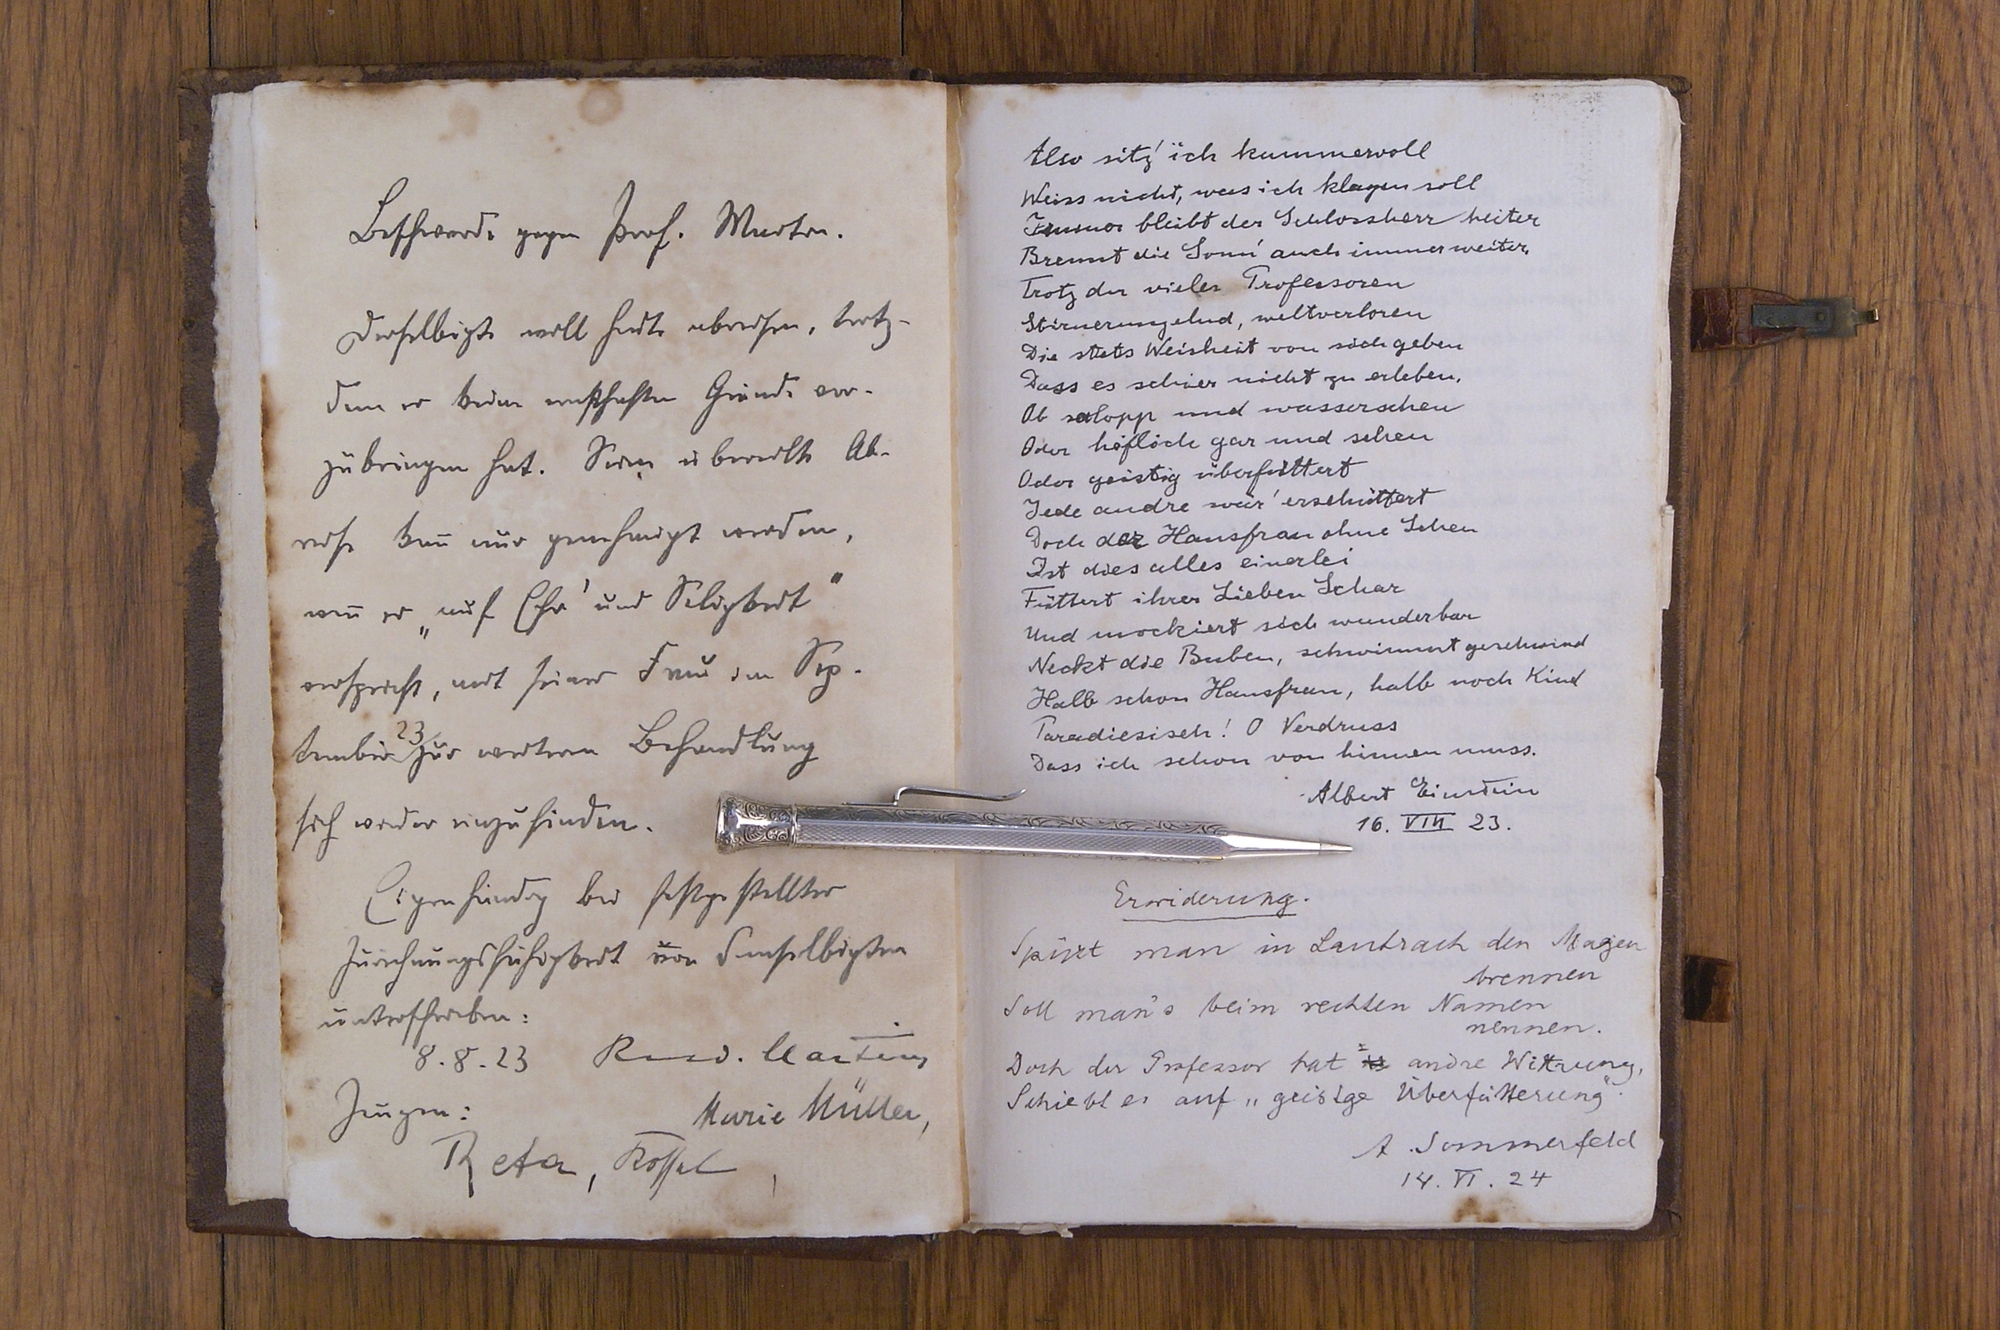 Beschwerde gegen Prof. Martin.
Derselbigte will heute abreisen, trotz-
dem er keine ernsthaften Gründe vor-
zubringen hat. Seine übereilte Ab-
reise kan̅ nur genehmigt werden,
wen̅ er „auf Ehr' und Seligkeit"
verspricht, mit seiner Frau im Sep-
tember 23 zur weiteren Behandlung
sich wieder einzufinden.
Eigenhändig bei festgestellter
Zurechnungsfähigkeit von Demselbigten
unterschrieben:
8.8.23
Zeugen: Marie Müller,
Reta,
Also sitz' ich kummervoll
Weiss nicht, was ich klagen soll
Immer bleibt der Schlossherr heiter
Brennt die Sonn' auch immer weiter,
Trotz der vielen Professoren
Stirnerunzelnd, weltverloren
Die stets Weisheit von sich geben
Dass es schier nicht zu erleben.
Ob salopp und wasserscheu
Oder höflich gar und scheu
Oder geistig überfüttert
Jede andre wär' erschüttert
Doch der Hausfrau ohne Scheu
Ist dies alles einerlei
Füttert ihrer Lieben Schar
Und mockiert sich wunderbar
Neckt die Buben, schwimmt geschwind
Halb schon Hausfrau, halb noch Kind
Paradiesisch! O Verdruss
Dass ich schon von hinnen muss.
Albert Einstein
16. VIII 23.
Erwiderung.
Spürt man in Lautrach den Magen
brennen
Soll man's beim rechten Namen
nennen.
Doch der Professor hat andre Wittrung,
Schiebt es auf „geistge Überfütterung".
A. Sommerfeld
14. VI. 24